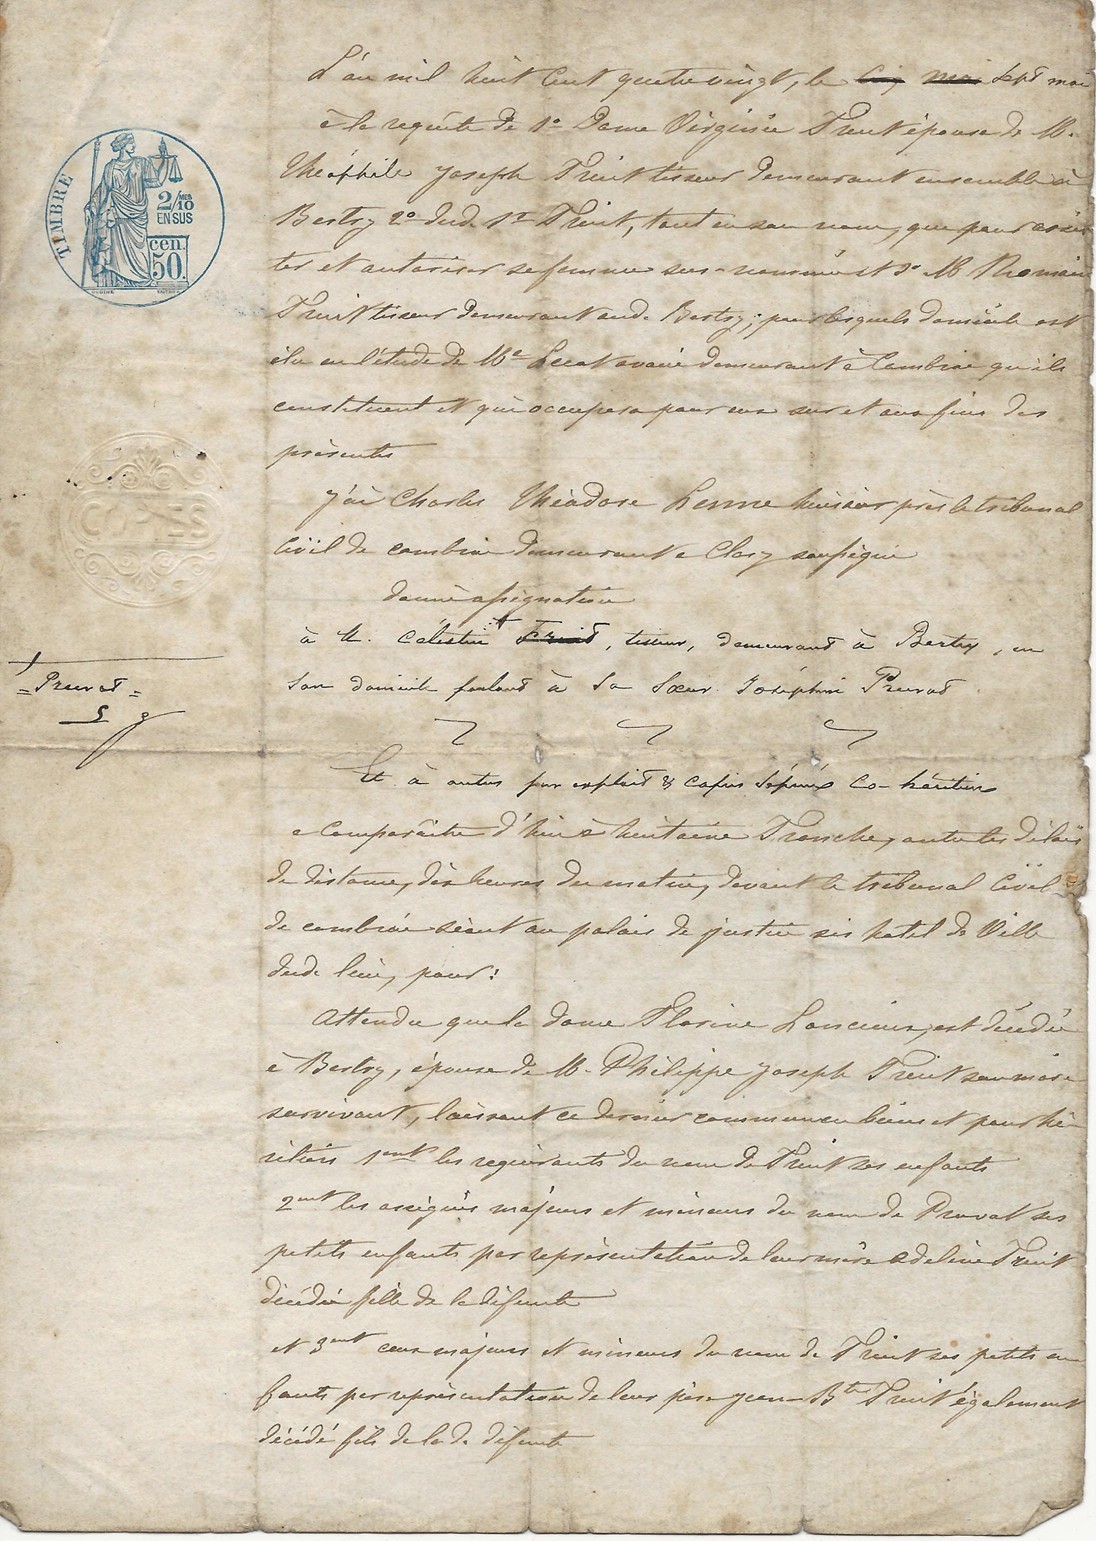 TIMBRE
2/10 MES
EN SUS
50 cen.
COPIES
L'an mil huit cent quatre vingt, le cinq mai sept mai
à la requête de 1º Dame Virginie Fruit épouse de M.
Théophile Joseph Fruit tisseur demeurant ensemble à
Bertry 2º dud. Sr Fruit, tant en son nom, que pour assis
ter et autoriser sa femme sus-nommée et 3º M Romain
Fruit tisseur demeurant aud. Bertry; pour lesquels domicile est
élu en l'étude de Me avoué demeurant à Cambrai qu'ils
constituent et qui occupera pour eux sur et aux fins des
présentes
J'ai Charles Théodore huissier près le tribunal
Civil de Cambrai demeurant à Clary soussigné
donné assignation
à M. Célestin Fruit, tisseur, demeurant à Bertry, en
son domicile parlant à sa Sœur Joséphine Pruvot
= Pruvot =
Et à autres par exploit & copies séparés co-héritiers
à Comparaître d'hui à huitaine franche, outre les délais
de distance, dix heures du matin, devant le tribunal Civil
de Cambrai séant au palais de justice sis hotel de Ville
dud. lieu, pour:
Attendu que la dame Florine est décédée
à Bertry, épouse de M. Philippe Joseph Fruit son mari
survivant, laissant ce dernier commun en biens et pour hé-
ritiers 1ent les requérants du nom de Fruit ses enfants
2ent les assignés majeurs et mineurs du nom de Pruvot ses
petits enfants par représentation de leur mère Adeline Fruit
décédée fille de la défunte
et 3ent ceux majeurs et mineurs du nom de Fruit ses petits en
fants par représentation de leur père Jean-Bte Fruit également
décédé fils de la de défunte